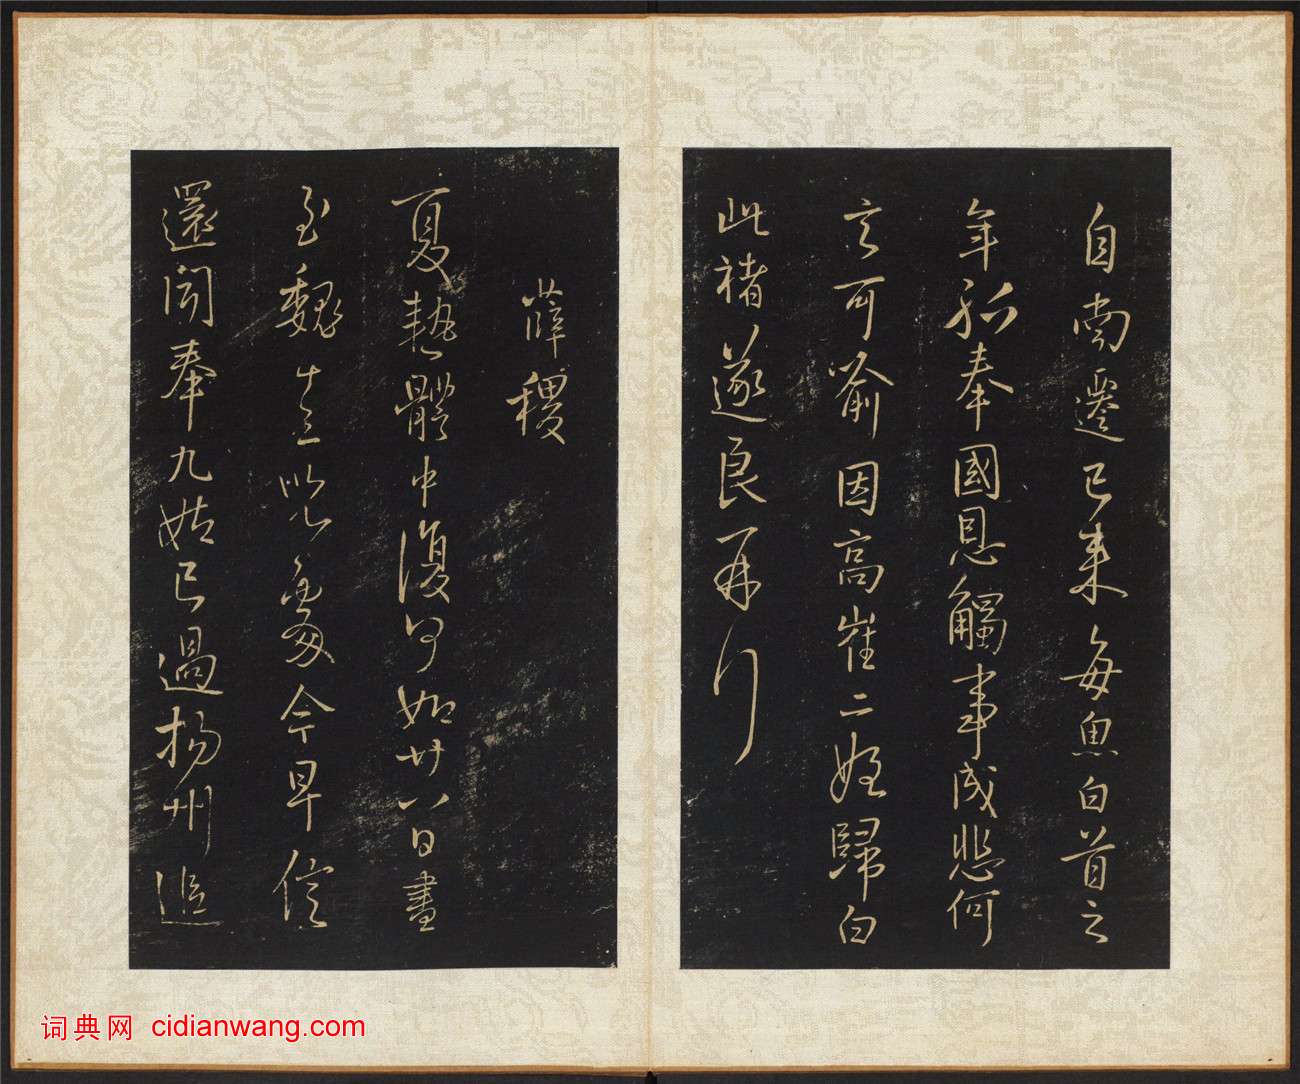 自南遷已來每思白首之
年孤奉國恩觸事成悲何
言可喻因高崔二姪歸白
此褚遂良再行
薛稷
夏熱體中復何如廿八日書
至魏十三今早信
還聞奉九姑已過揚州追
词典网 cidianwang.com